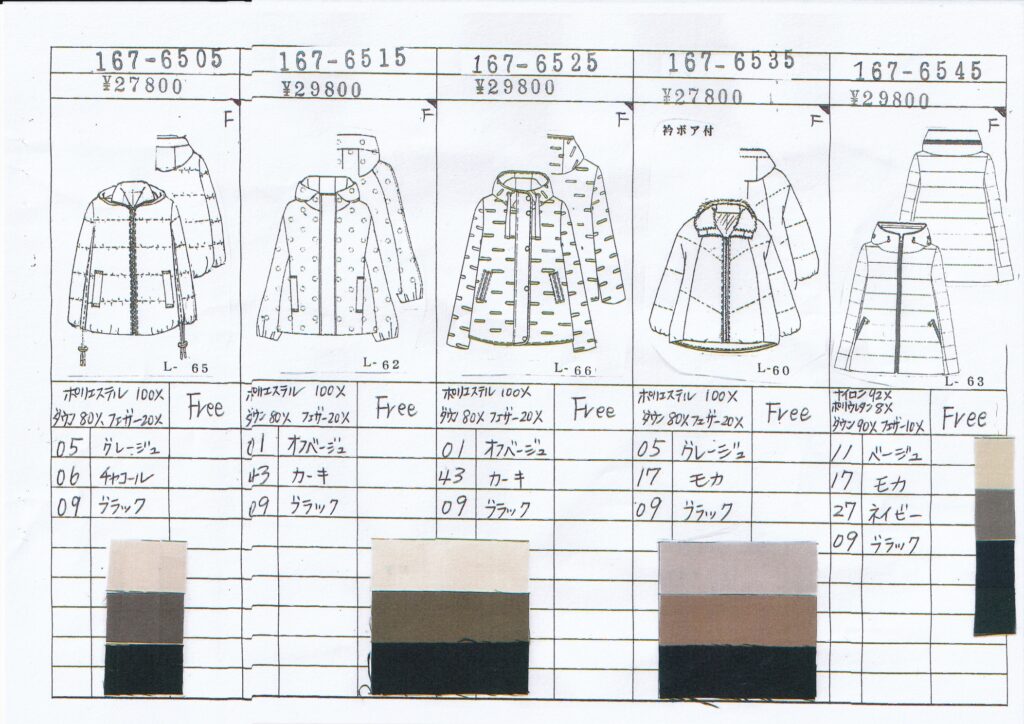 167-6505
¥27800
F
L- 65
ポリエステル 100%
ダウン 80% フェザー20%
Free
05 グレージュ
06 チャコール
09 ブラック
167-6515
¥29800
F
L- 62
ポリエステル 100%
ダウン 80% フェザー20%
Free
01 オフベージュ
43 カーキ
09 ブラック
167-6525
¥29800
F
L- 66
ポリエステル 100%
ダウン 80% フェザー20%
Free
01 オフベージュ
43 カーキ
09 ブラック
167-6535
¥27800
F
衿ボア付
L-60
ポリエステル 100%
ダウン 80% フェザー20%
Free
05 グレージュ
17 モカ
09 ブラック
167-6545
¥29800
F
L- 63
ナイロン 92%
ポリウレタン 8%
ダウン 90% フェザー10%
Free
11 ベージュ
17 モカ
27 ネイビー
09 ブラック